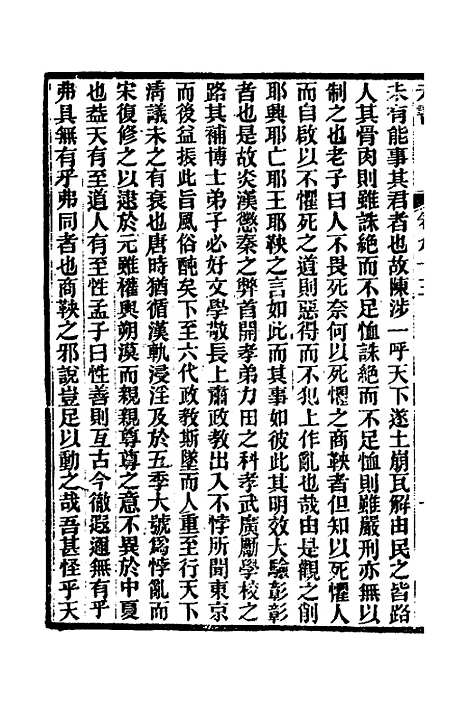 未有能事其君者也故陳涉一呼天下遂土崩瓦解由民之皆路
人其骨肉則雖誅絶而不足恤誅絶而不足恤則雖嚴刑亦無以
制之也老子曰人不畏死奈何以死懼之商鞅者但知以死懼人
而自啟以不懼死之道則惡得而不犯上作亂也哉由是觀之創
耶興耶亡耶王耶鞅之言如此而其事如彼此其明效大驗彰彰
者也是故炎漢懲秦之弊首開孝弟力田之科孝武廣勵學校之
路其補博士弟子必好文學敬長上肅政教出入不悖所聞東京
而後益振此旨風俗醇矣下至六代政教斯墜而人重至行天下
淸議未之有衰也唐時猶循漢軌浸淫及於五季大號爲悖亂而
宋復修之以逮於元雖權輿朔漠而親親尊尊之意不異於中夏
也葢天有至道人有至性孟子曰性善則亙古今徹遐邇無有乎
弗具無有乎弗同者也商鞅之邪說豈足以動之哉吾甚怪乎天